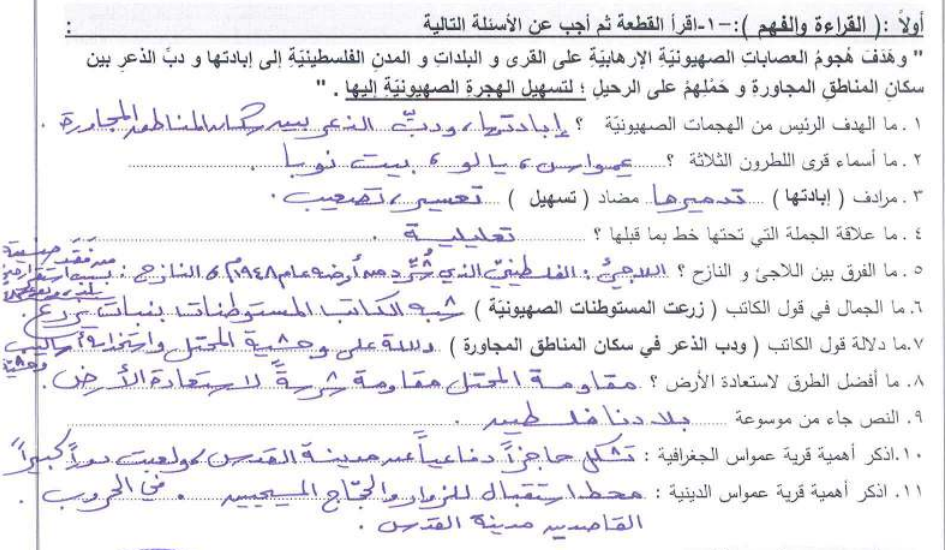 أولاً :( القراءة والفهم ):-١-اقرأ القطعة ثم أجب عن الأسئلة التالية :
" وهَدَفَ هُجومُ العصاباتِ الصهيونيّةِ الإرهابيّةِ على القرى و البلداتِ و المدنِ الفلسطينيّةِ إلى إبادتها و دبِّ الذعرِ بين
سكانِ المناطقِ المجاورةِ و حَمْلِهِمْ على الرحيلِ ؛ لتسهيلِ الهجرةِ الصهيونيّةِ إليها . "
١ . ما الهدف الرئيس من الهجمات الصهيونيّة ؟ إبادتها ، ودبّ الذعر بين سكان المناطق المجاورة .
٢ . ما أسماء قرى اللطرون الثلاثة ؟ عمواس ، يالو ، بيت نوبا
٣ . مرادف ( إبادتها ) تدميرها مضاد ( تسهيل ) تعسير ، تصعيب .
٤ . ما علاقة الجملة التي تحتها خط بما قبلها ؟ تعليلية .
٥ . ما الفرق بين اللاجئ و النازح ؟ اللاجئ : الفلسطينيّ الذي شُرّد من أرضه عام ١٩٤٨م ، النازح :
٦. ما الجمال في قول الكاتب ( زرعت المستوطنات الصهيونيّة ) شبه الكاتب المستوطنات بنبات يزرع .
٧.ما دلالة قول الكاتب ( ودب الذعر في سكان المناطق المجاورة ) دلالة على وحشية المحتل واستخدامه أساليب وحشيّة
٨. ما أفضل الطرق لاستعادة الأرض ؟ مقاومة المحتل مقاومة شرسةً لاستعادة الأرض .
٩. النص جاء من موسوعة بلادنا فلسطين .
١٠.اذكر أهمية قرية عمواس الجغرافية : تشكل حاجزاً دفاعياً عن مدينة القدس ، ولعبت دوراً كبيراً
في الحروب .
١١. اذكر أهمية قرية عمواس الدينية : محط استقبال للزوار والحجّاج المسيحيين
القاصدين مدينة القدس .